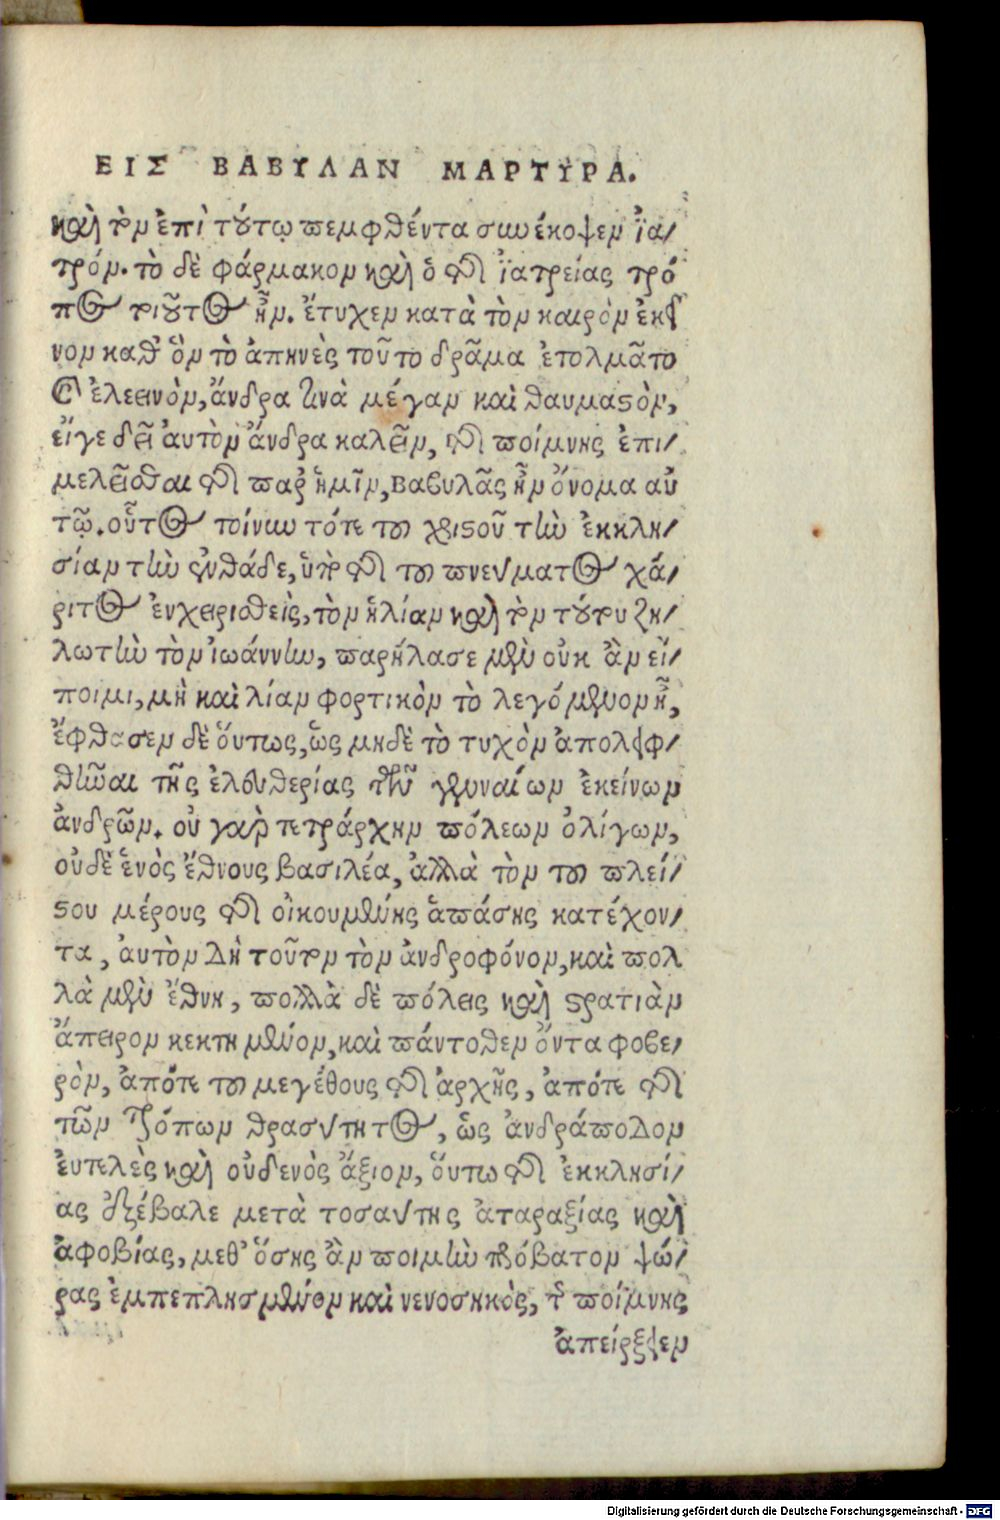 ΕΙΣ ΒΑΒΥΛΑΝ ΜΑΡΤΥΡΑ.
καὶ τὸν ἐπὶ τούτῳ πεμφθέντα συνέκοψεν ἰα/
τρόν. τὸ δὲ φάρμακον καὶ ὁ τῆς ἰατρείας τρό
πος τοιοῦτος ἦν. ἔτυχεν κατὰ τὸν καιρὸν ἐκεῖ
νον καθ' ὃν τὸ ἀπηνὲς τοῦτο δρᾶμα ἐτολμᾶτο
καὶ ἐλεεινὸν, ἄνδρα τινὰ μέγαν καὶ θαυμαστὸν,
εἴγε δεῖ αὐτὸν ἄνδρα καλεῖν, τῆς ποίμνης ἐπι/
μελεῖσθαι τῆς παρ' ἡμῖν, Βαβυλᾶς ἦν ὄνομα αὐ
τῷ. οὗτος τοίνυν τότε τοῦ χριστοῦ τὴν ἐκκλη/
σίαν τὴν ἐνθάδε, ὑπὸ τῆς τοῦ πνεύματος χά/
ριτος ἐνχειρισθεὶς, τὸν ἠλίαν καὶ τὸν τούτου ζη/
λωτὴν τὸν ἰωάννην, παρήλασε μὲν οὐκ ἂν εἴ/
ποιμι, μὴ καὶ λίαν φορτικὸν τὸ λεγόμενον ᾖ,
ἔφθασεν δὲ οὕτως, ὡς μηδὲ τὸ τυχὸν ἀπολειφ/
θῆναι τῆς ἐλευθερίας τῶν γενναίων ἐκείνων
ἀνδρῶν. οὐ γὰρ τετράρχην πόλεων ὀλίγων,
οὐδὲ ἑνὸς ἔθνους βασιλέα, ἀλλὰ τὸν τοῦ πλεί/
στου μέρους τῆς οἰκουμένης ἁπάσης κατέχον/
τα, αὐτὸν δὴ τοῦτον τὸν ἀνδροφόνον, καὶ πολ
λὰ μὲν ἔθνη, πολλὰ δὲ πόλεις καὶ στρατιὰν
ἄπειρον κεκτημένον, καὶ πάντοθεν ὄντα φοβε/
ρὸν, ἀπότε τοῦ μεγέθους τῆς ἀρχῆς, ἀπότε τῆς
τῶν τρόπων θρασύτητος, ὡς ἀνδράποδον
εὐτελὲς καὶ οὐδενὸς ἄξιον, οὕτω τῆς ἐκκλησί/
ας ἐξέβαλε μετὰ τοσαύτης ἀταραξίας καὶ
ἀφοβίας, μεθ' ὅσης ἂν ποιμὴν πρόβατον ψώ/
ρας ἐμπεπλησμένον καὶ νενοσηκὸς, τῆς ποίμνης
ἀπείρξειεν
Digitalisierung gefördert durch die Deutsche Forschungsgemeinschaft - DFG